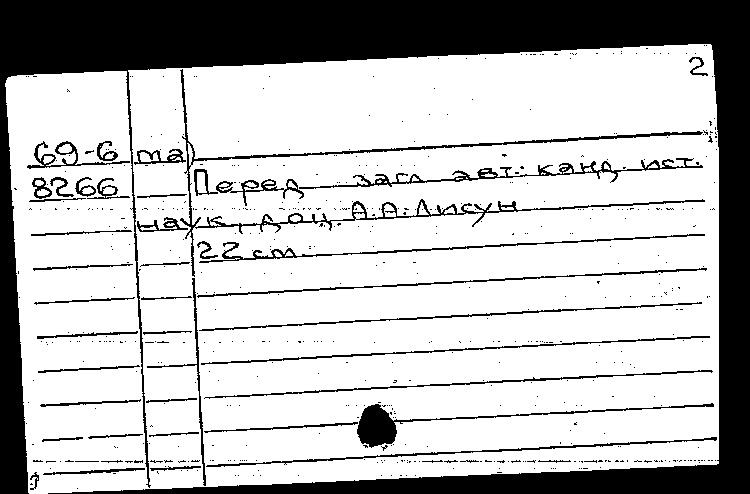 2
69-6 та)
8266 Перед загл. авт.: канд. ист.
наук, доц. А.А. Лисун
22 см.